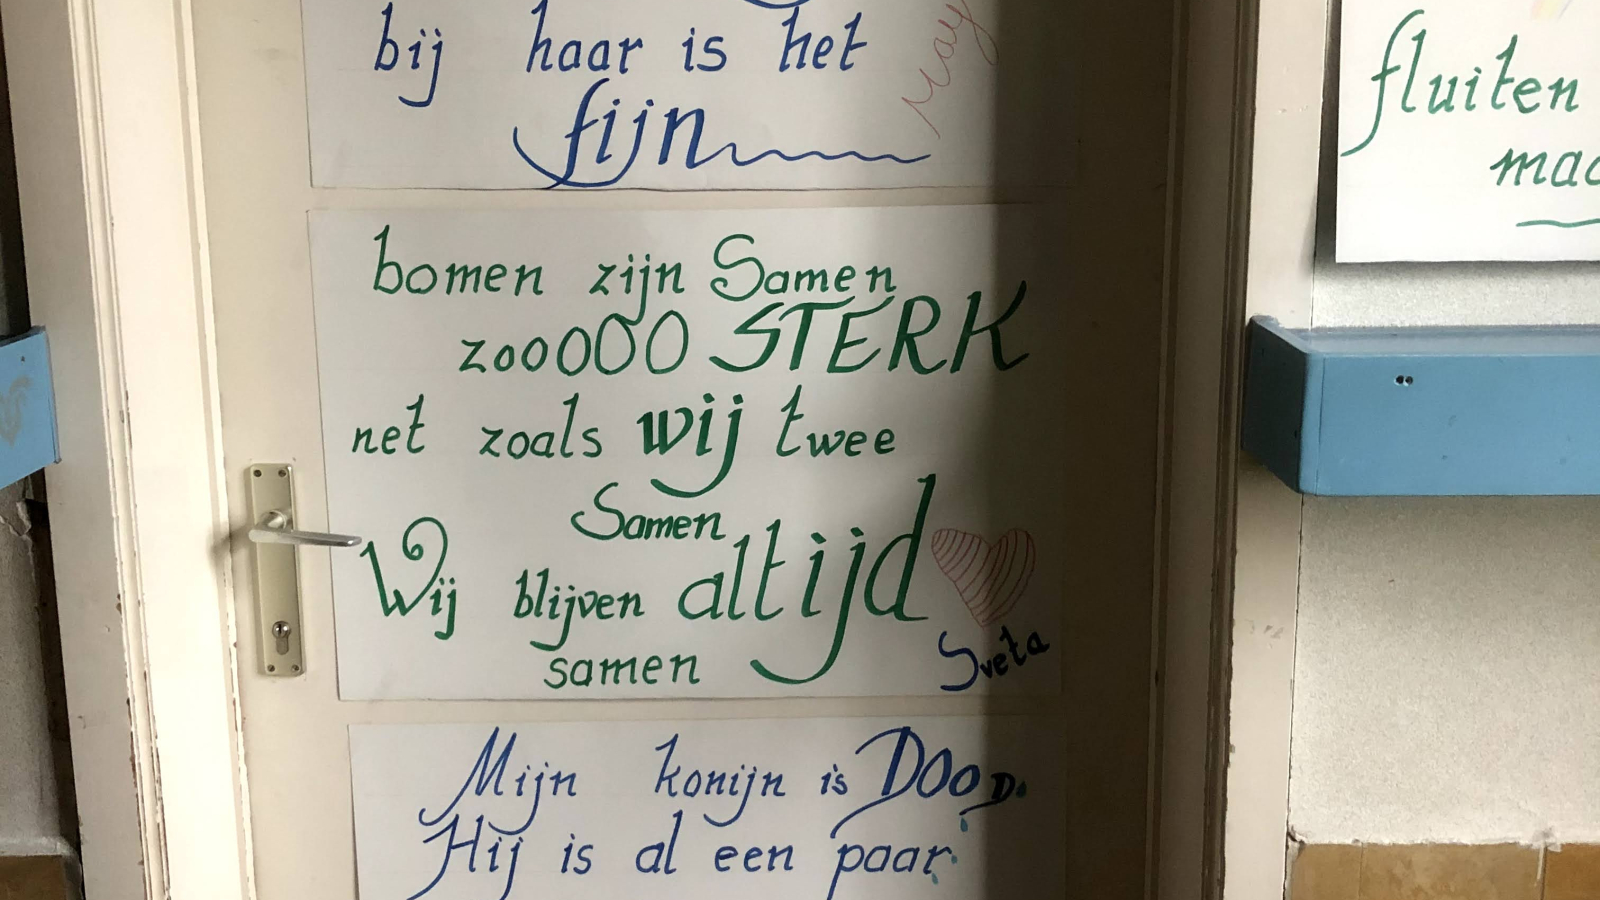 bij haar is het
fijn
May
bomen zijn Samen
zooOOO STERK
net zoals wij twee
Samen
Wij blijven altijd
samen
Sveta
Mijn konijn is DOOD.
Hij is al een paar
fluiten